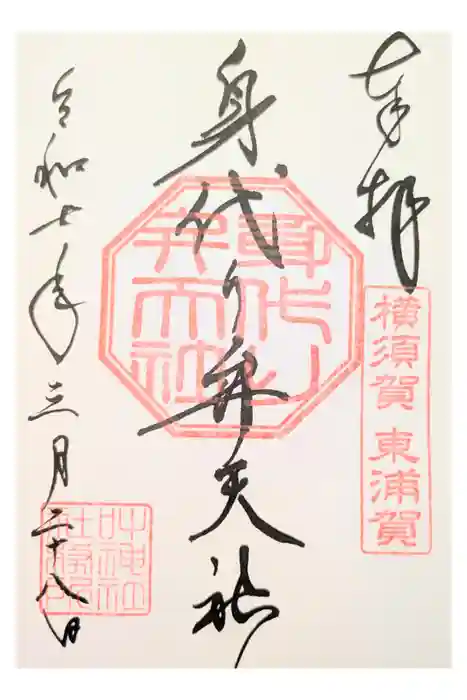 奉拝
横須賀 東浦賀
身代り弁天社
身代り弁天社
令和七年三月二十八日
叶神社社務所